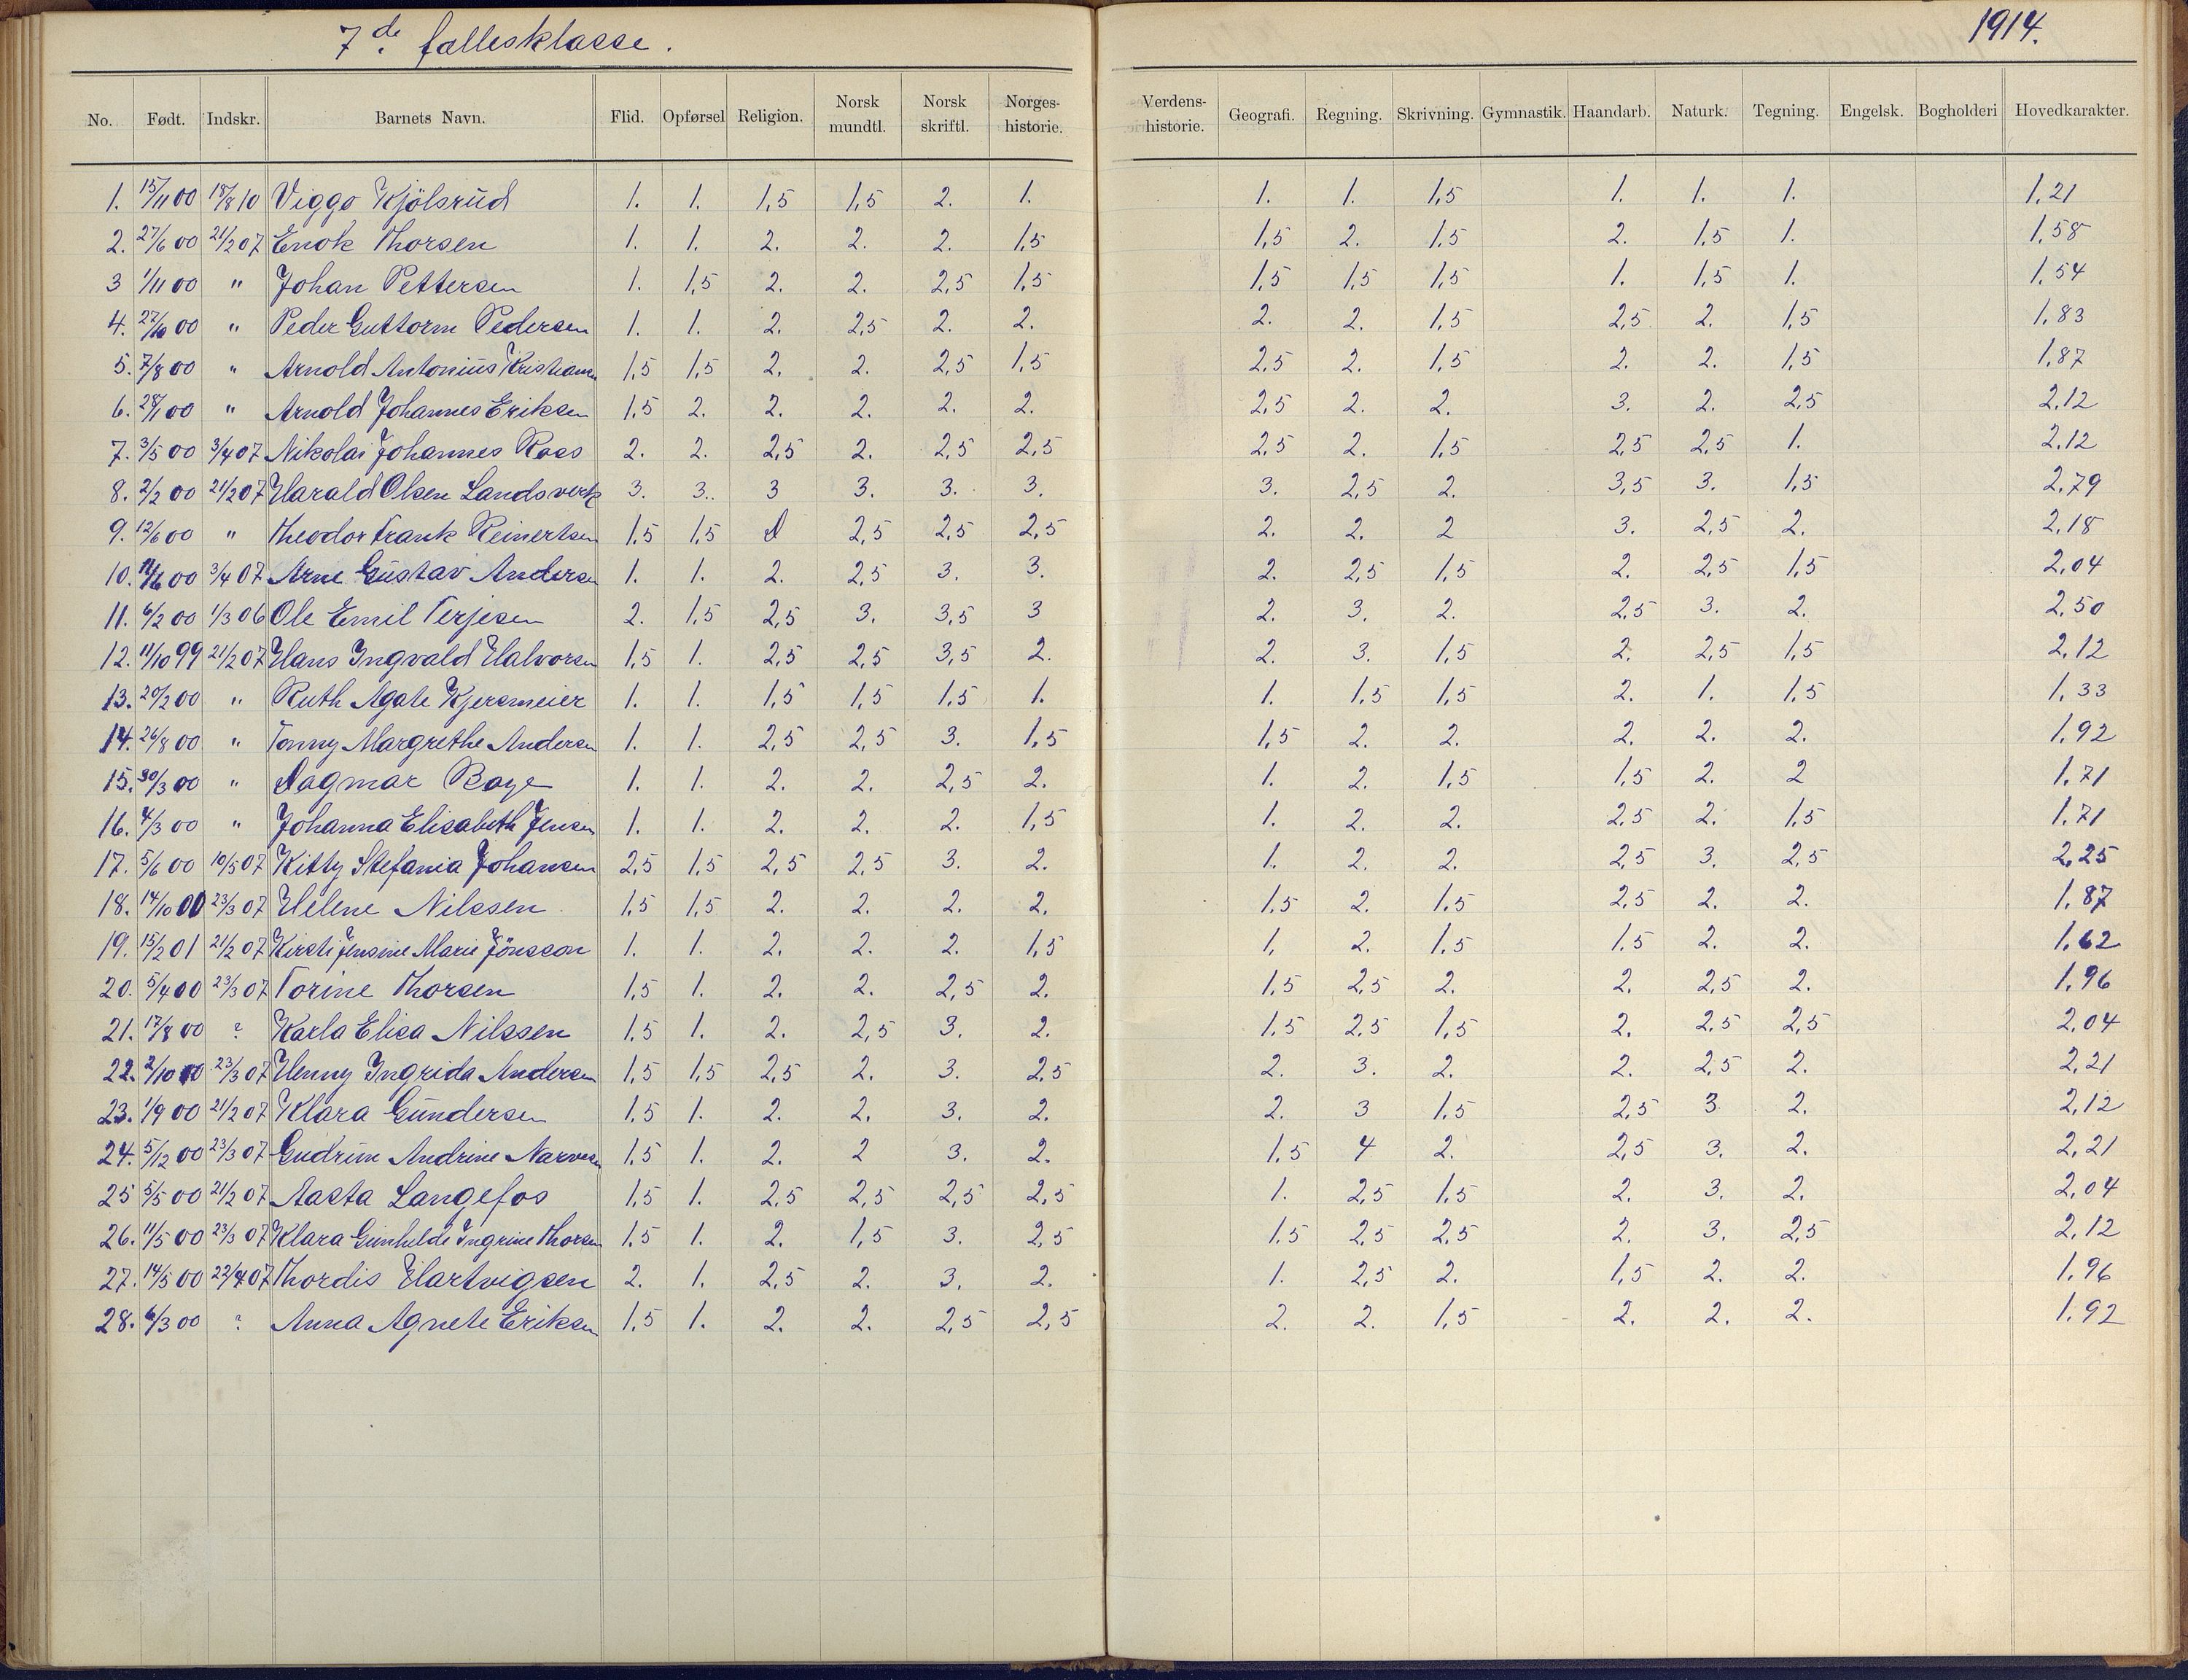 7de fællesklasse.
1914.
No. Født. Indskr. Barnets Navn. Flid. Opførsel Religion. Norsk mundtl. Norsk skriftl. Norges-historie. Verdens-historie. Geografi. Regning. Skrivning. Gymnastik. Haandarb. Naturk. Tegning. Engelsk. Bogholderi Hovedkarakter.
1. 15/11 00 18/8 10 Viggo Kjölsrud 1. 1. 1,5 1,5 2. 1. 1. 1. 1,5 1. 1. 1. 1,21
2. 27/6 00 21/2 07 Enok Thorsen 1. 1. 2. 2. 2. 1,5 1,5 2. 1,5 2. 1,5 1. 1,58
3 1/11 00 " Johan Pettersen 1. 1,5 2. 2. 2,5 1,5 1,5 1,5 1,5 1. 1,5 1. 1,54
4. 27/10 00 " Peder Guttorm Pedersen 1. 1. 2. 2,5 2. 2. 2. 2. 1,5 2,5 2. 1,5 1,83
5. 7/8 00 " Arnold Antonius Kristiansen 1,5 1,5 2. 2. 2,5 1,5 2,5 2. 1,5 2. 2. 1,5 1,87
6. 28/1 00 " Arnold Johannes Eriksen 1,5 2. 2. 2. 2. 2. 2,5 2. 2. 3. 2. 2,5 2,12
7. 3/5 00 3/4 07 Nikolai Johannes Roos 2. 2. 2,5 2. 2,5 2,5 2,5 2. 1,5 2,5 2,5 1. 2,12
8. 2/2 00 21/2 07 Harald Olsen Landsverk 3. 3. 3 3. 3. 3. 3. 2,5 2. 3,5 3. 1,5 2,79
9. 12/6 00 " Theodor Frank Reinertsen 1,5 1,5 2,5 2,5 2,5 2. 2. 2 3. 2,5 2. 2,18
10. 11/6 00 3/4 07 Arne Gustav Andersen 1. 1. 2. 2,5 3. 3. 2. 2,5 1,5 2. 2,5 1,5 2,04
11. 6/2 00 1/3 06 Ole Emil Terjesen 2. 1,5 2,5 3. 3,5 3 2. 3. 2. 2,5 3. 2. 2,50
12. 11/10 99 21/2 07 Hans Ingvald Halvorsen 1,5 1. 2,5 2,5 3,5 2. 2. 3. 1,5 2. 2,5 1,5 2,12
13. 20/2 00 " Ruth Agate Kjersmeier 1. 1. 1,5 1,5 1,5 1. 1. 1,5 1,5 2. 1. 1,5 1,33
14. 26/8 00 " Tonny Margrethe Andersen 1. 1. 2,5 2,5 3. 1,5 1,5 2. 2. 2. 2. 2. 1,92
15. 30/3 00 " Dagmar Boye 1. 1. 2. 2. 2,5 2. 1. 2. 1,5 1,5 2. 2 1,71
16. 4/3 00 " Johanna Elisabeth Jensen 1. 1. 2. 2. 2. 1,5 1. 2. 2. 2,5 2. 1,5 1,71
17. 5/6 00 10/5 07 Kitty Stefania Johansen 2,5 1,5 2,5 2,5 3. 2. 1. 2. 2. 2,5 3. 2,5 2,25
18. 14/10 00 23/3 07 Helene Nilssen 1,5 1,5 2. 2. 2. 2. 1,5 2. 1,5 2,5 2. 2. 1,87
19. 15/2 01 21/2 07 Kirsti Jensine Marie Jönsson 1. 1. 2. 2. 2. 1,5 1, 2. 1,5 1,5 2. 2. 1,62
20. 5/4 00 23/3 07 Torine Thorsen 1,5 1. 2. 2. 2,5 2. 1,5 2,5 2. 2. 2,5 2. 1,96
21. 17/8 00 ? Karla Elisa Nilssen 1,5 1. 2. 2,5 3. 2. 1,5 2,5 1,5 2. 2,5 2,5 2,04
22. 2/10 00 23/3 07 Henny Ingrida Andersen 1,5 1,5 2,5 2. 3. 2,5 2. 3. 2. 2. 2,5 2. 2,21
23. 1/9 00 21/2 07 Klara Gundersen 1,5 1. 2. 2. 3. 2. 2. 3 1,5 2,5 3 2. 2,12
24. 5/12 00 23/3 07 Gudrun Andrine Narvesen 1,5 1. 2. 2 3. 2. 1,5 4 2. 2,5 3. 2. 2,21
25 5/5 00 21/2 07 Aasta Langefos 1,5 1. 2,5 2,5 2,5 2,5 1. 2,5 1,5 2. 3. 2. 2,04
26. 11/5 00 23/3 07 Klara Gunhilde Ingrine Thorsen 1,5 1. 2. 1,5 3. 2,5 1,5 2,5 2,5 2. 3. 2,5 2,12
27. 14/5 00 22/4 07 Thordis Hartvigsen 2. 1. 2,5 2. 3. 2. 1. 2,5 2. 1,5 2. 2. 1,96
28. 6/3 00 ? Anna Agnete Eriksen 1,5 1. 2. 2. 2,5 2,5 2. 2. 1,5 2. 2. 2. 1,92